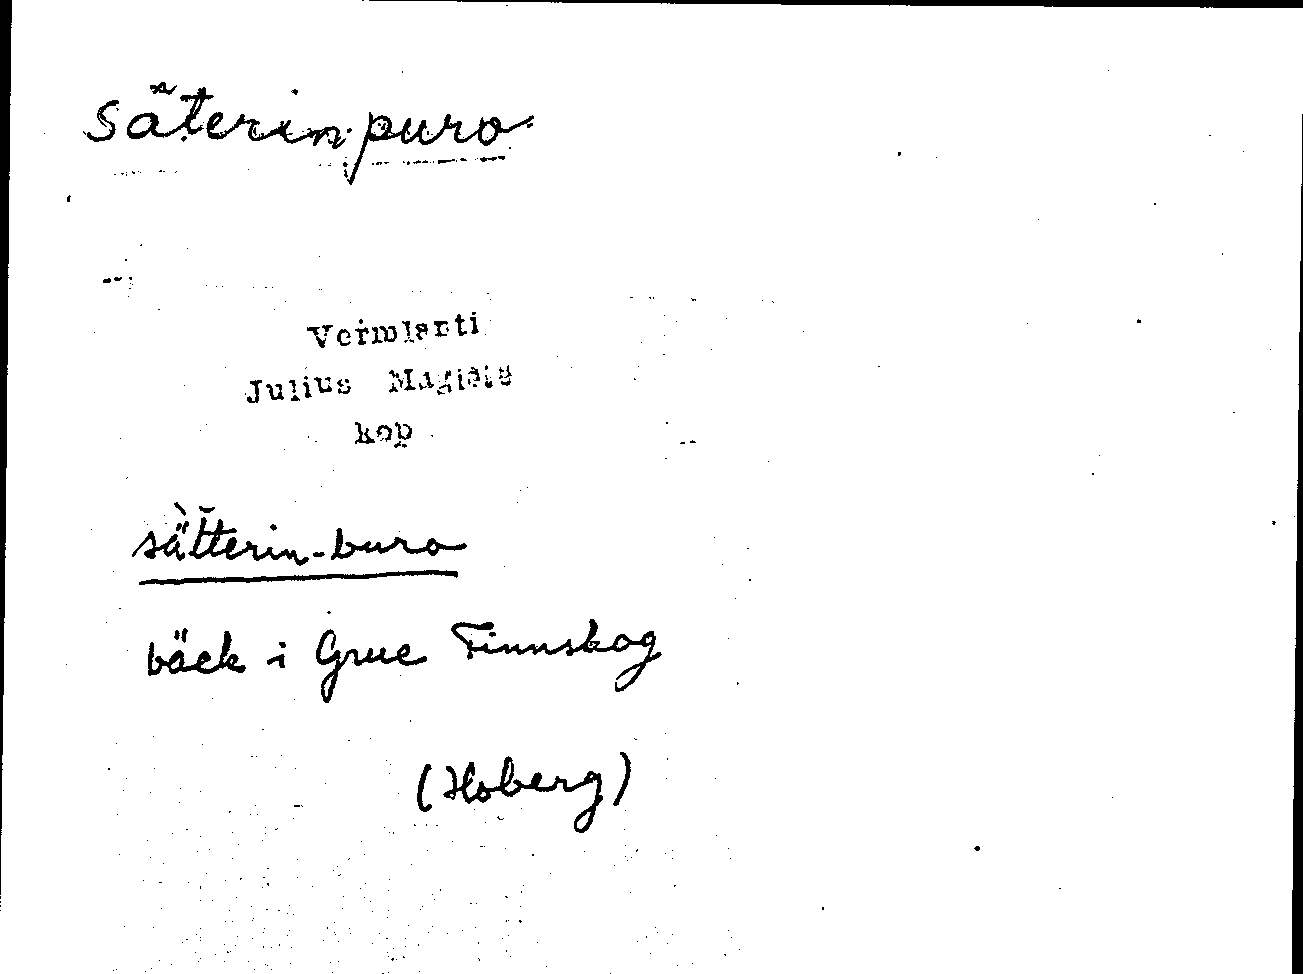 säterinpuro
Vermlanti
Julius Mägiste
kop
sä̀t̆terin-buro
bäck i Grue Finnskog
(Hoberg)